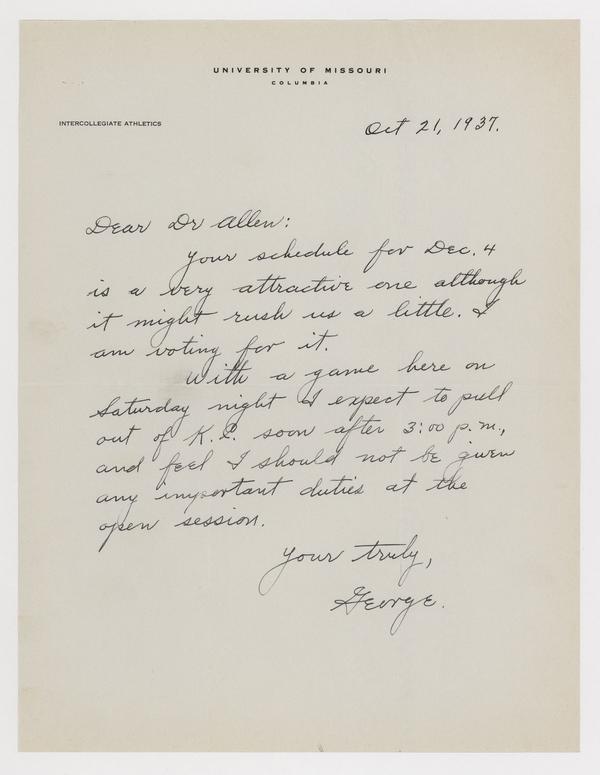 UNIVERSITY OF MISSOURI
COLUMBIA
INTERCOLLEGIATE ATHLETICS
Oct 21, 1937.
Dear Dr Allen:
Your schedule for Dec. 4
is a very attractive one although
it might rush us a little. I
am voting for it.
With a game here on
Saturday night I expect to pull
out of K.C. soon after 3:00 p.m.,
and feel I should not be given
any important duties at the
open session.
Your truly,
George.